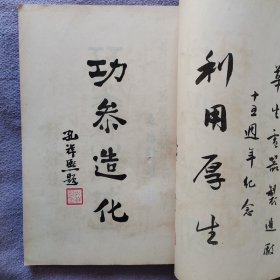 華生電器製造廠
十五週年紀念
利用厚生
功參造化
孔祥熙題